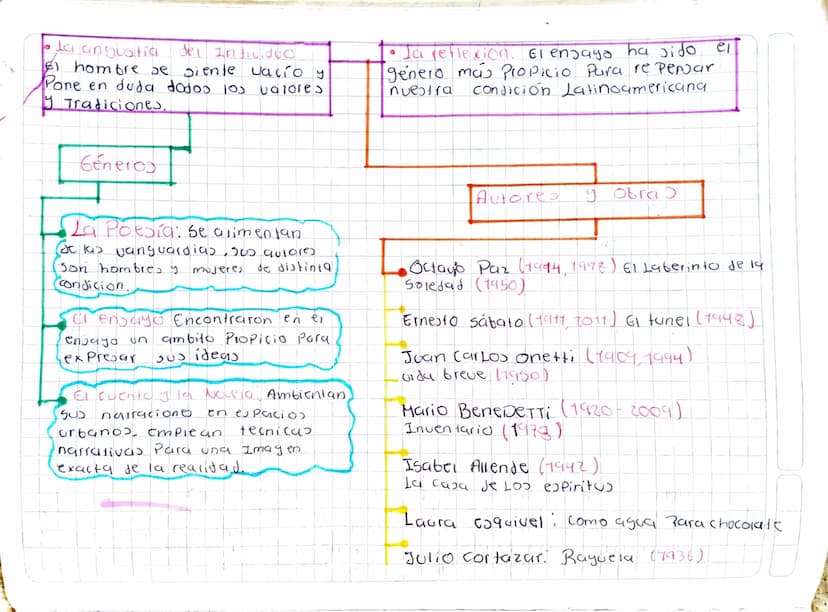 • La angustia del Individuo
El hombre se siente vacío y
Pone en duda dodos los valores
y Tradiciones.
• La reflexion. El ensayo ha sido el
género más Propicio Para re Pensar
nuestra condición Latinoamericana
Géneros
La Poesía: Se alimentan
de las vanguardias, sus autores
son hombres y mujeres de distinta
condicion.
El ensayo Encontraron en el
ensayo un ambito Propicio Para
expresar sus ideas
El cuento y la Novela, Ambientan
sus narraciones en espacios
urbanos, emplean tecnicas
narrativas Para una Imagen
exacta de la realidad.
Autores y Obras
Octavio Paz (1914, 1998) El Laberinto de la
Soledad (1950)
Ernesto sábato (1911, 2011) El tunel (1948)
Juan Carlos Onetti (1909, 1994)
vida breve (1950)
Mario BeneDetti (1920 - 2009)
Inventario (1978)
Isabel Allende (1942)
La casa de Los espiritus
Laura esquivel: como agua Para chocolate
Julio cortazar: Rayuela (1936)